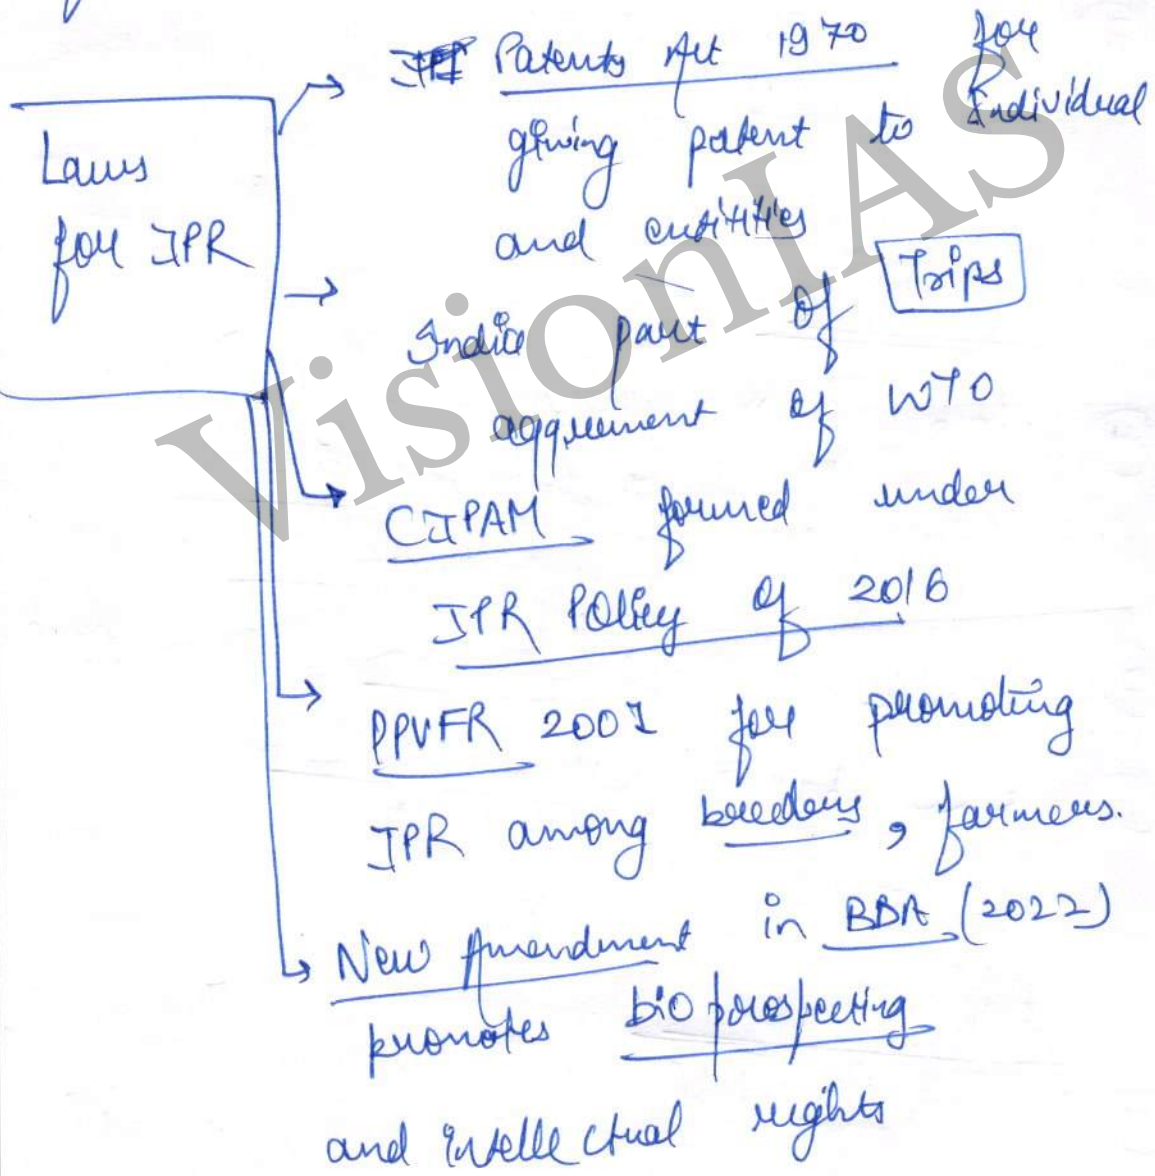 Laws
for IPR
Patents Act 1970 for
giving patent to individual
and entities
Indice part of Trips
aggreement of WTO
CIPAM formed under
IPR Policy of 2016
PPVFR 2001 for promoting
IPR among breeders, farmers.
New Amendment in BBA (2022)
promotes bio prospecting
and intellectual rights
VisionIAS